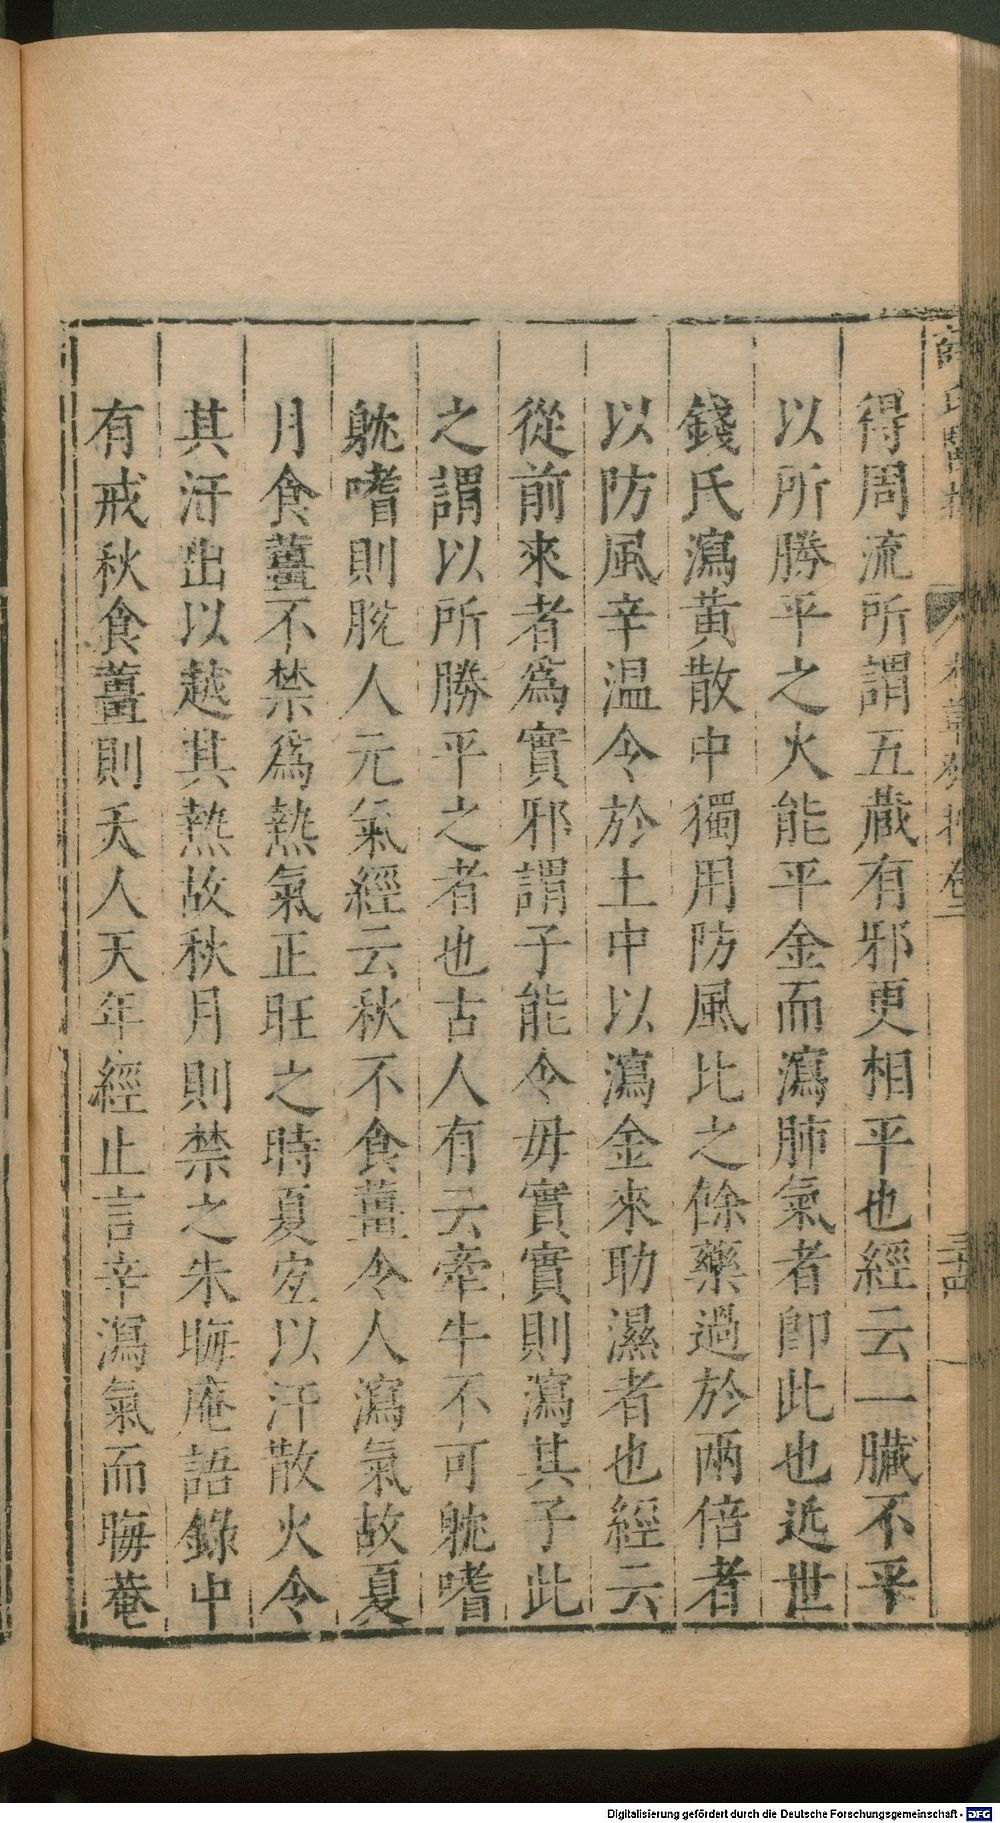 得周流所謂五藏有邪更相平也經云一臟不平
以所勝平之火能平金而瀉肺氣者卽此也近世
錢氏瀉黃散中獨用防風比之餘藥過於兩倍者
以防風辛温令於土中以瀉金來助濕者也經云
從前來者爲實邪謂子能令毋實實則瀉其子此
之謂以所勝平之者也古人有云牽牛不可躭嗜
躭嗜則脫人元氣經云秋不食薑令人瀉氣故夏
月食薑不禁爲熱氣正旺之時夏宐以汗散火令
其汗出以越其熱故秋月則禁之朱晦庵語錄中
有戒秋食薑則夭人天年經止言辛瀉氣而晦菴
Digitalisierung gefördert durch die Deutsche Forschungsgemeinschaft - DFG